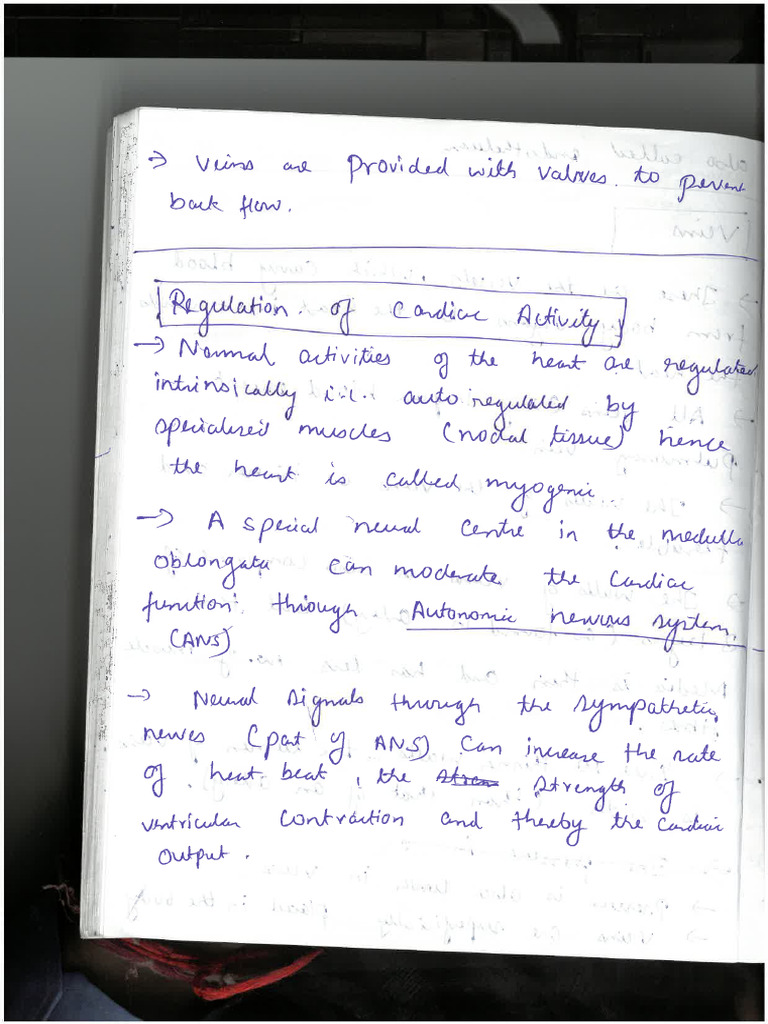 → Veins are provided with valves to pevent
back flow.
Regulation of Cardiac Activity
→ Normal activities of the heart are regulated
intrinsically i.e. auto regulated by
specialised muscles (nodal tissue) hence
the heart is called myogenic
→ A special neural centre in the medulla
oblongata can moderate the cardiac
function through Autonomic nervous system.
(ANS)
→ Neural signals through the sympathetic
nerves (part of ANS) can increase the rate
of heat beat, the strength of
ventricular contraction and thereby the cardiac
output.